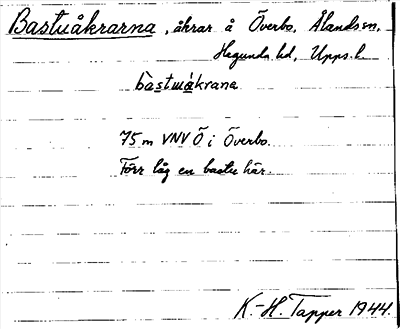 Bastuåkrarna, åkrar å Överbo, Ålands sn,
Hagunda hd, Upps. l.
bàstuåkrana
75 m VNV Ö i Överbo.
Förr låg en bastu här.
K.-H. Tapper 1944.